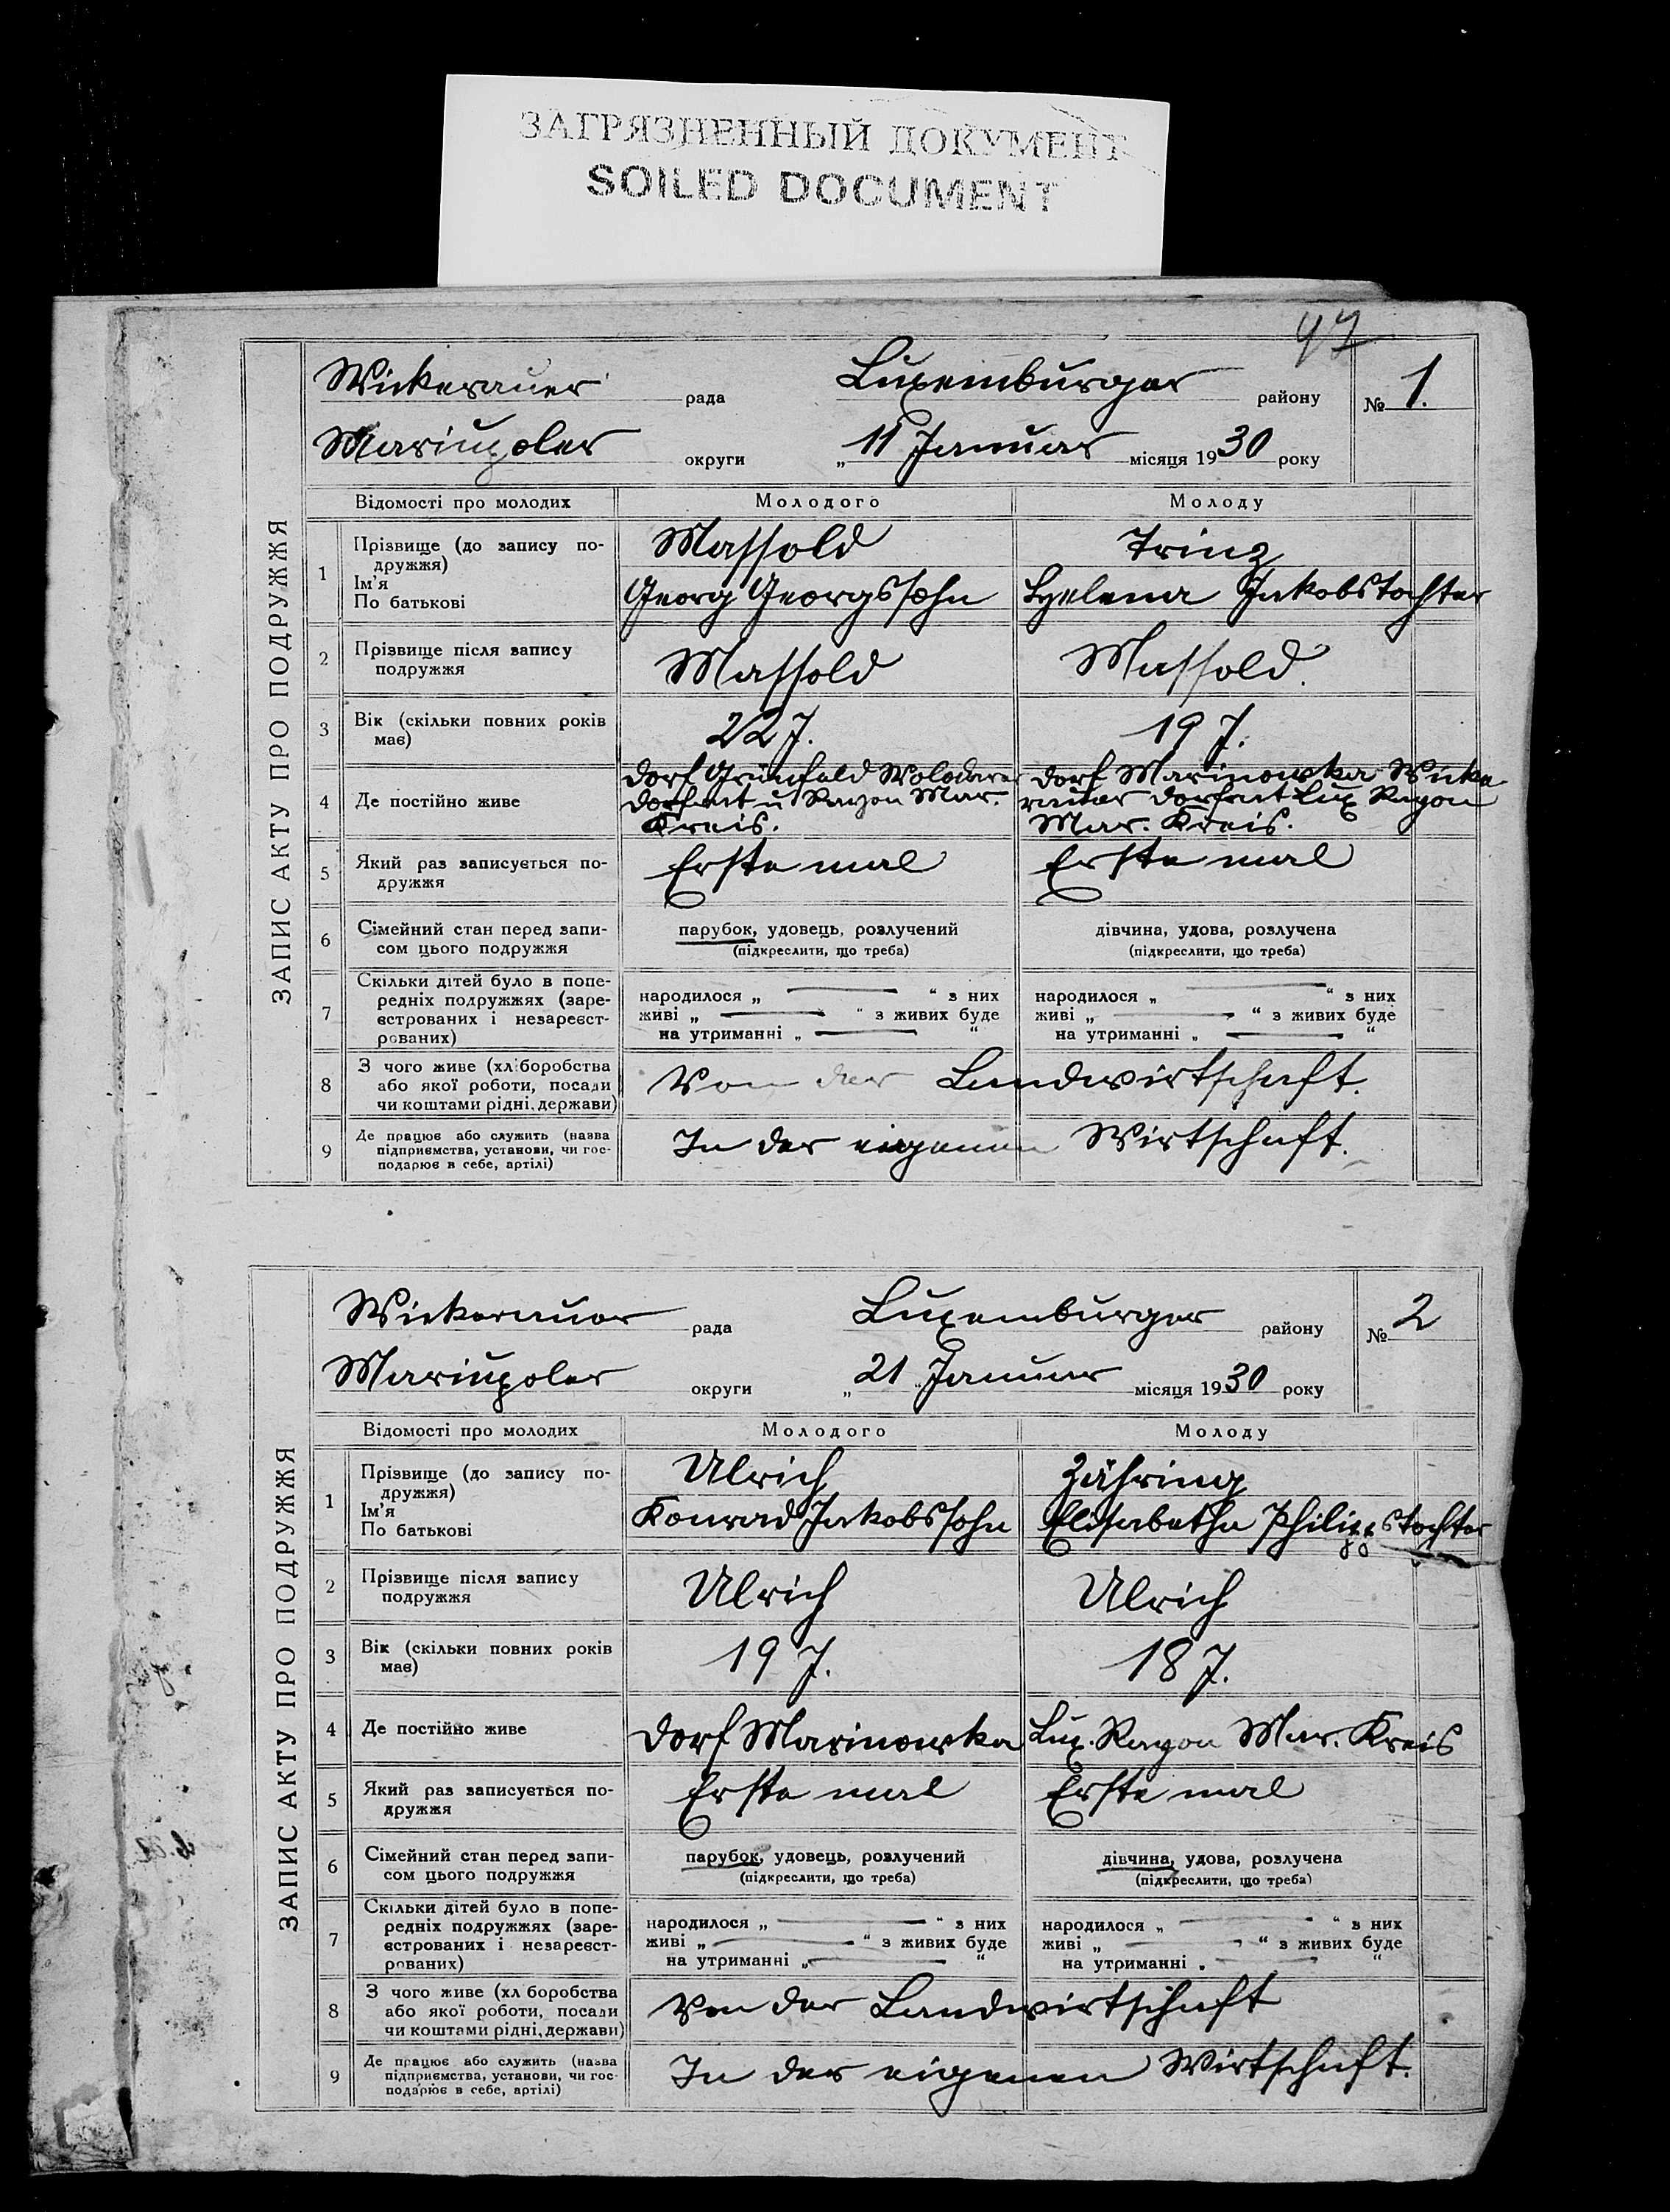 ЗАГРЯЗНЕННЫЙ ДОКУМЕНТ
SOILED DOCUMENT
97
ЗАПИС АКТУ ПРО ПОДРУЖЖЯ
Wickerauer рада Luxemburger району № 1.
Mariupoler округи „ 11 Januar місяця 1930 року
Відомості про молодих Молодого Молоду
1 Прізвище (до запису по-
дружжя) Massold Trinz
Ім'я
По батькові Georg Georgssohn Helena Jakobstochter
2 Прізвище після запису
подружжя Massold Massold.
3 Вік (скільки повних років
має) 22 J. 19 J.
4 Де постійно живе
Dorf Grünfeld Wolodarer
Dorfrat u Rayon Mar.
Kreis.
Dorf Marinowka Wicke
rauer Dorfrat Lux Rayon
Mar. Kreis.
5 Який раз записується по-
дружжя Erste mal Erste mal
6 Сімейний стан перед запи-
сом цього подружжя
парубок, удовець, розлучений
(підкреслити, що треба)
дівчина, удова, розлучена
(підкреслити, що треба)
7 Скільки дітей було в попе-
редніх подружжях (заре-
єстрованих і незареєст-
рованих)
народилося „ — “ з них
живі „ — “ з живих буде
на утриманні „ — “
народилося „ — “ з них
живі „ — “ з живих буде
на утриманні „ — “
8 З чого живе (хліборобства
або якої роботи, посади
чи коштами рідні, держави)
Von der Landwirtschaft.
9 Де працює або служить (назва
підприємства, установи, чи гос-
подарює в себе, артілі)
In der eigenen Wirtschaft.
ЗАПИС АКТУ ПРО ПОДРУЖЖЯ
Wickerauer рада Luxemburger району № 2
Mariupoler округи „ 21 Januar місяця 1930 року
Відомості про молодих Молодого Молоду
1 Прізвище (до запису по-
дружжя) Ulrich Zähring
Ім'я
По батькові Konrad Jakobssohn Elisabetha Philippstochter
2 Прізвище після запису
подружжя Ulrich Ulrich
3 Вік (скільки повних років
має) 19 J. 18 J.
4 Де постійно живе Dorf Marinowka Lux. Rayon Mar. Kreis
5 Який раз записується по-
дружжя Erste mal Erste mal
6 Сімейний стан перед запи-
сом цього подружжя
парубок, удовець, розлучений
(підкреслити, що треба)
дівчина, удова, розлучена
(підкреслити, що треба)
7 Скільки дітей було в попе-
редніх подружжях (заре-
єстрованих і незареєст-
рованих)
народилося „ — “ з них
живі „ — “ з живих буде
на утриманні „ — “
народилося „ — “ з них
живі „ — “ з живих буде
на утриманні „ — “
8 З чого живе (хл боробства
або якої роботи, посади
чи коштами рідні, держави)
Von der Landwirtschaft
9 Де працює або служить (назва
підприємства, установи, чи гос-
подарює в себе, артілі)
In der eigenen Wirtschaft.